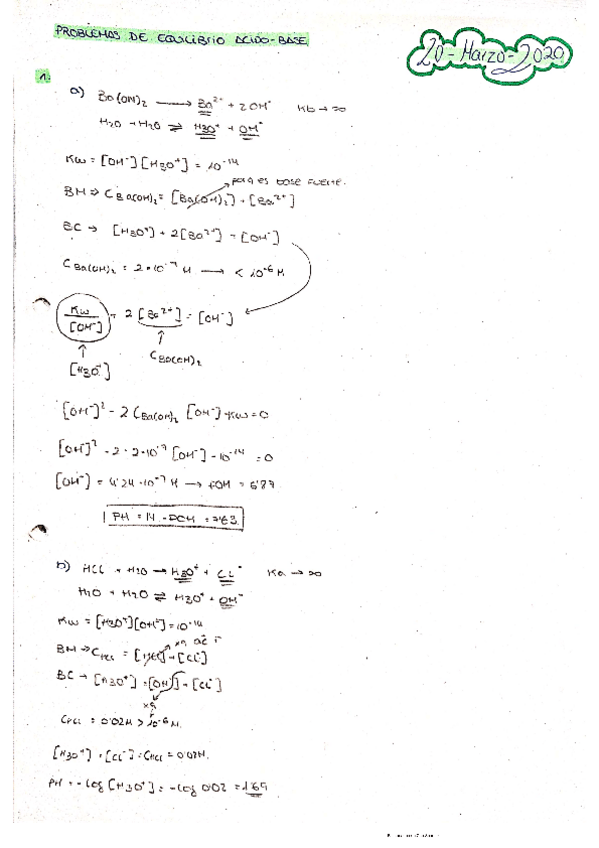 PROBLEMAS DE EQUILIBRIO ÁCIDO-BASE
20-Marzo-2020
1.
a) Ba(OH)₂ ⟶ Ba²⁺ + 2OH⁻ Kb → ∞
H₂O + H₂O ⇌ H₃O⁺ + OH⁻
Kw = [OH⁻][H₃O⁺] = 10⁻¹⁴
es base fuerte.
BM ⇒ C Ba(OH)₂ = [Ba(OH)₂] + [Ba²⁺]
BC → [H₃O⁺] + 2[Ba²⁺] = [OH⁻]
C Ba(OH)₂ = 2·10⁻⁷ M ⟶ < 10⁻⁶ M
Kw/[OH⁻] + 2[Ba²⁺] = [OH⁻]
[H₃O⁺] C Ba(OH)₂
[OH⁻]² - 2 C Ba(OH)₂ [OH⁻] - Kw = 0
[OH⁻]² - 2·2·10⁻⁷ [OH⁻] - 10⁻¹⁴ = 0
[OH⁻] = 4'24·10⁻⁷ M → pOH = 6'37
PH = 14 - POH = 7'63
b) HCl + H₂O → H₃O⁺ + Cl⁻ Ka → ∞
H₂O + H₂O ⇌ H₃O⁺ + OH⁻
Kw = [H₃O⁺][OH⁻] = 10⁻¹⁴
xq ác f
BM ⇒ C HCl = [HCl] + [Cl⁻]
BC → [H₃O⁺] = [OH⁻] + [Cl⁻]
xq
C HCl = 0'02M > 10⁻⁶ M.
[H₃O⁺] = [Cl⁻] = C HCl = 0'02M.
PH = -log [H₃O⁺] = -log 0'02 = 1'69